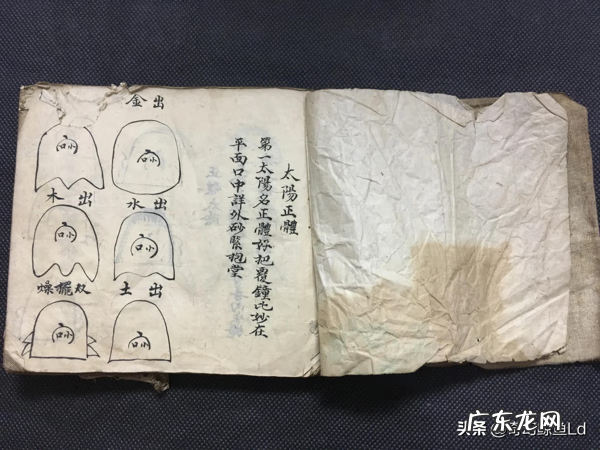 太陽正體
第一太陽名正體好把覆鐘比妙在
平面口中詳外砂緊抱堂
出金
出水
出木
出土
双擺
头条
广东龙网